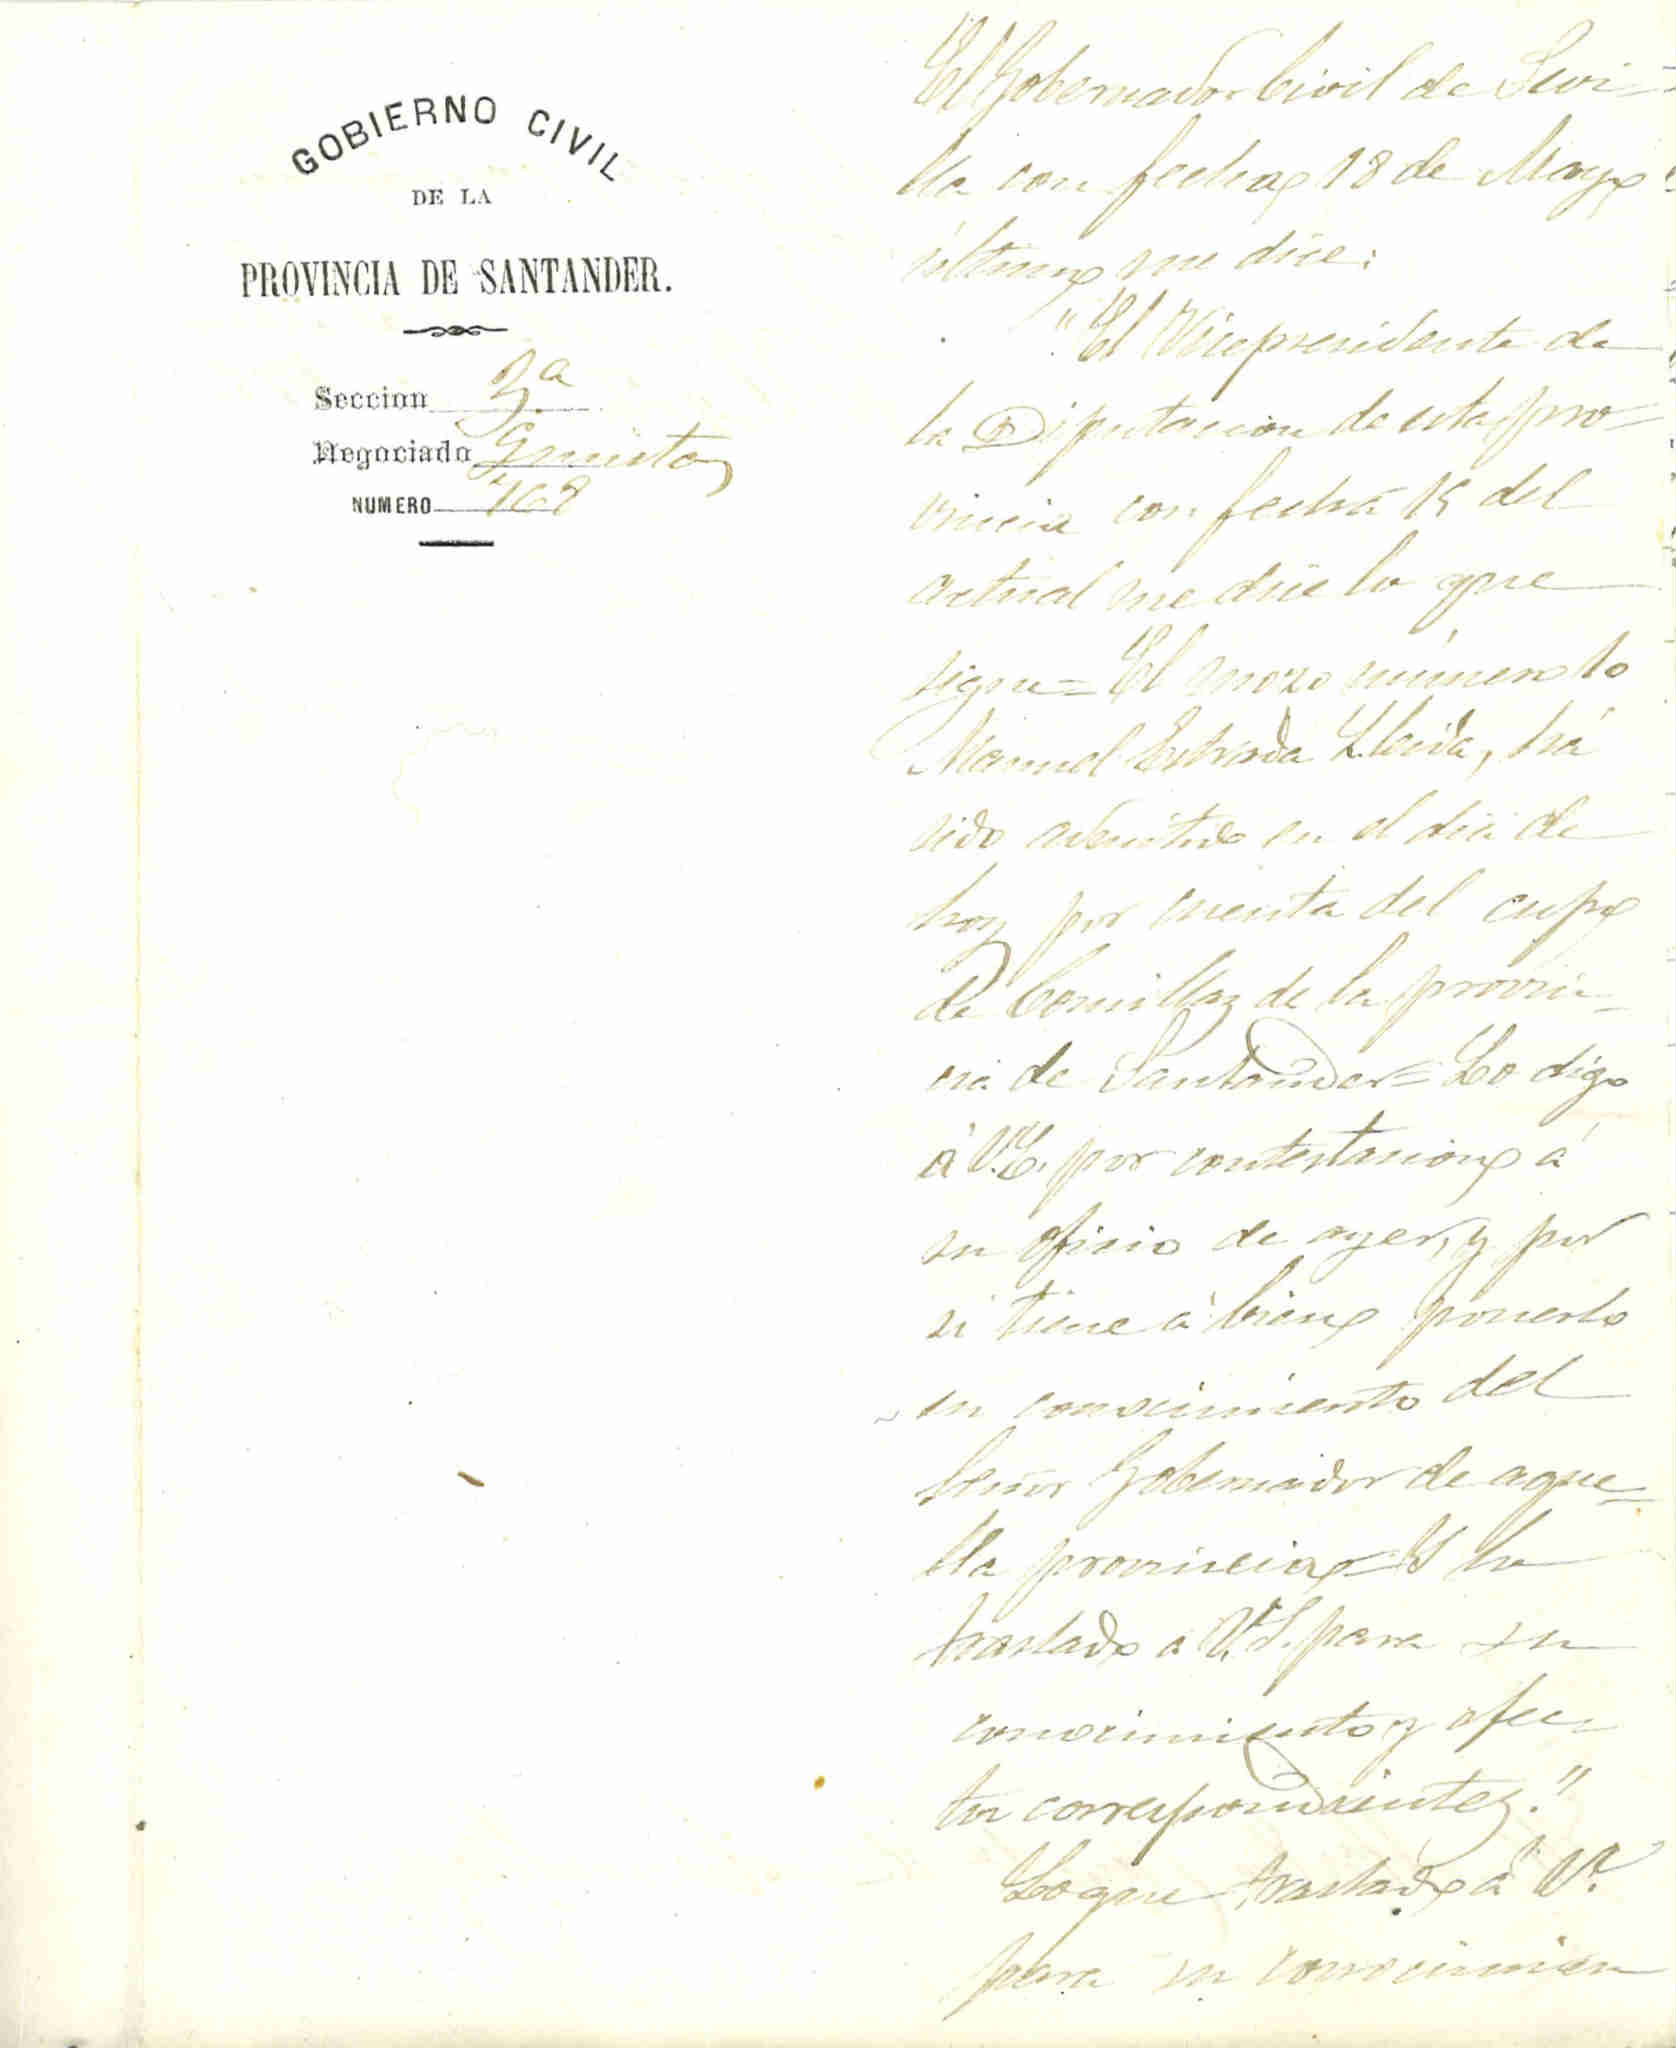 GOBIERNO CIVIL
DE LA
PROVINCIA DE SANTANDER.
Seccion 3ª
Negociado Quintas
NUMERO 768
El Gobernador Civil de Sevi=
lla con fecha 18 de Mayo
último me dice:
"El Vicepresidente de
la Diputacion de esta pro=
vincia con fecha 15 del
actual me dice lo que
sigue= El mozo número 10
Manuel Estrada Lleida, há
sido admitido en el dia de
hoy por cuenta del cupo
de Comillas de la provin-
cia de Santander= Lo digo
á V.E. por contestacion á
su oficio de ayer, y por
si tiene á bien ponerlo
en conocimiento del
Señor Gobernador de aque=
lla provincia= Y lo
traslado a V.S. para su
conocimiento y efec-
tos correspondientes."
Lo que traslado á V.
para su conocimien